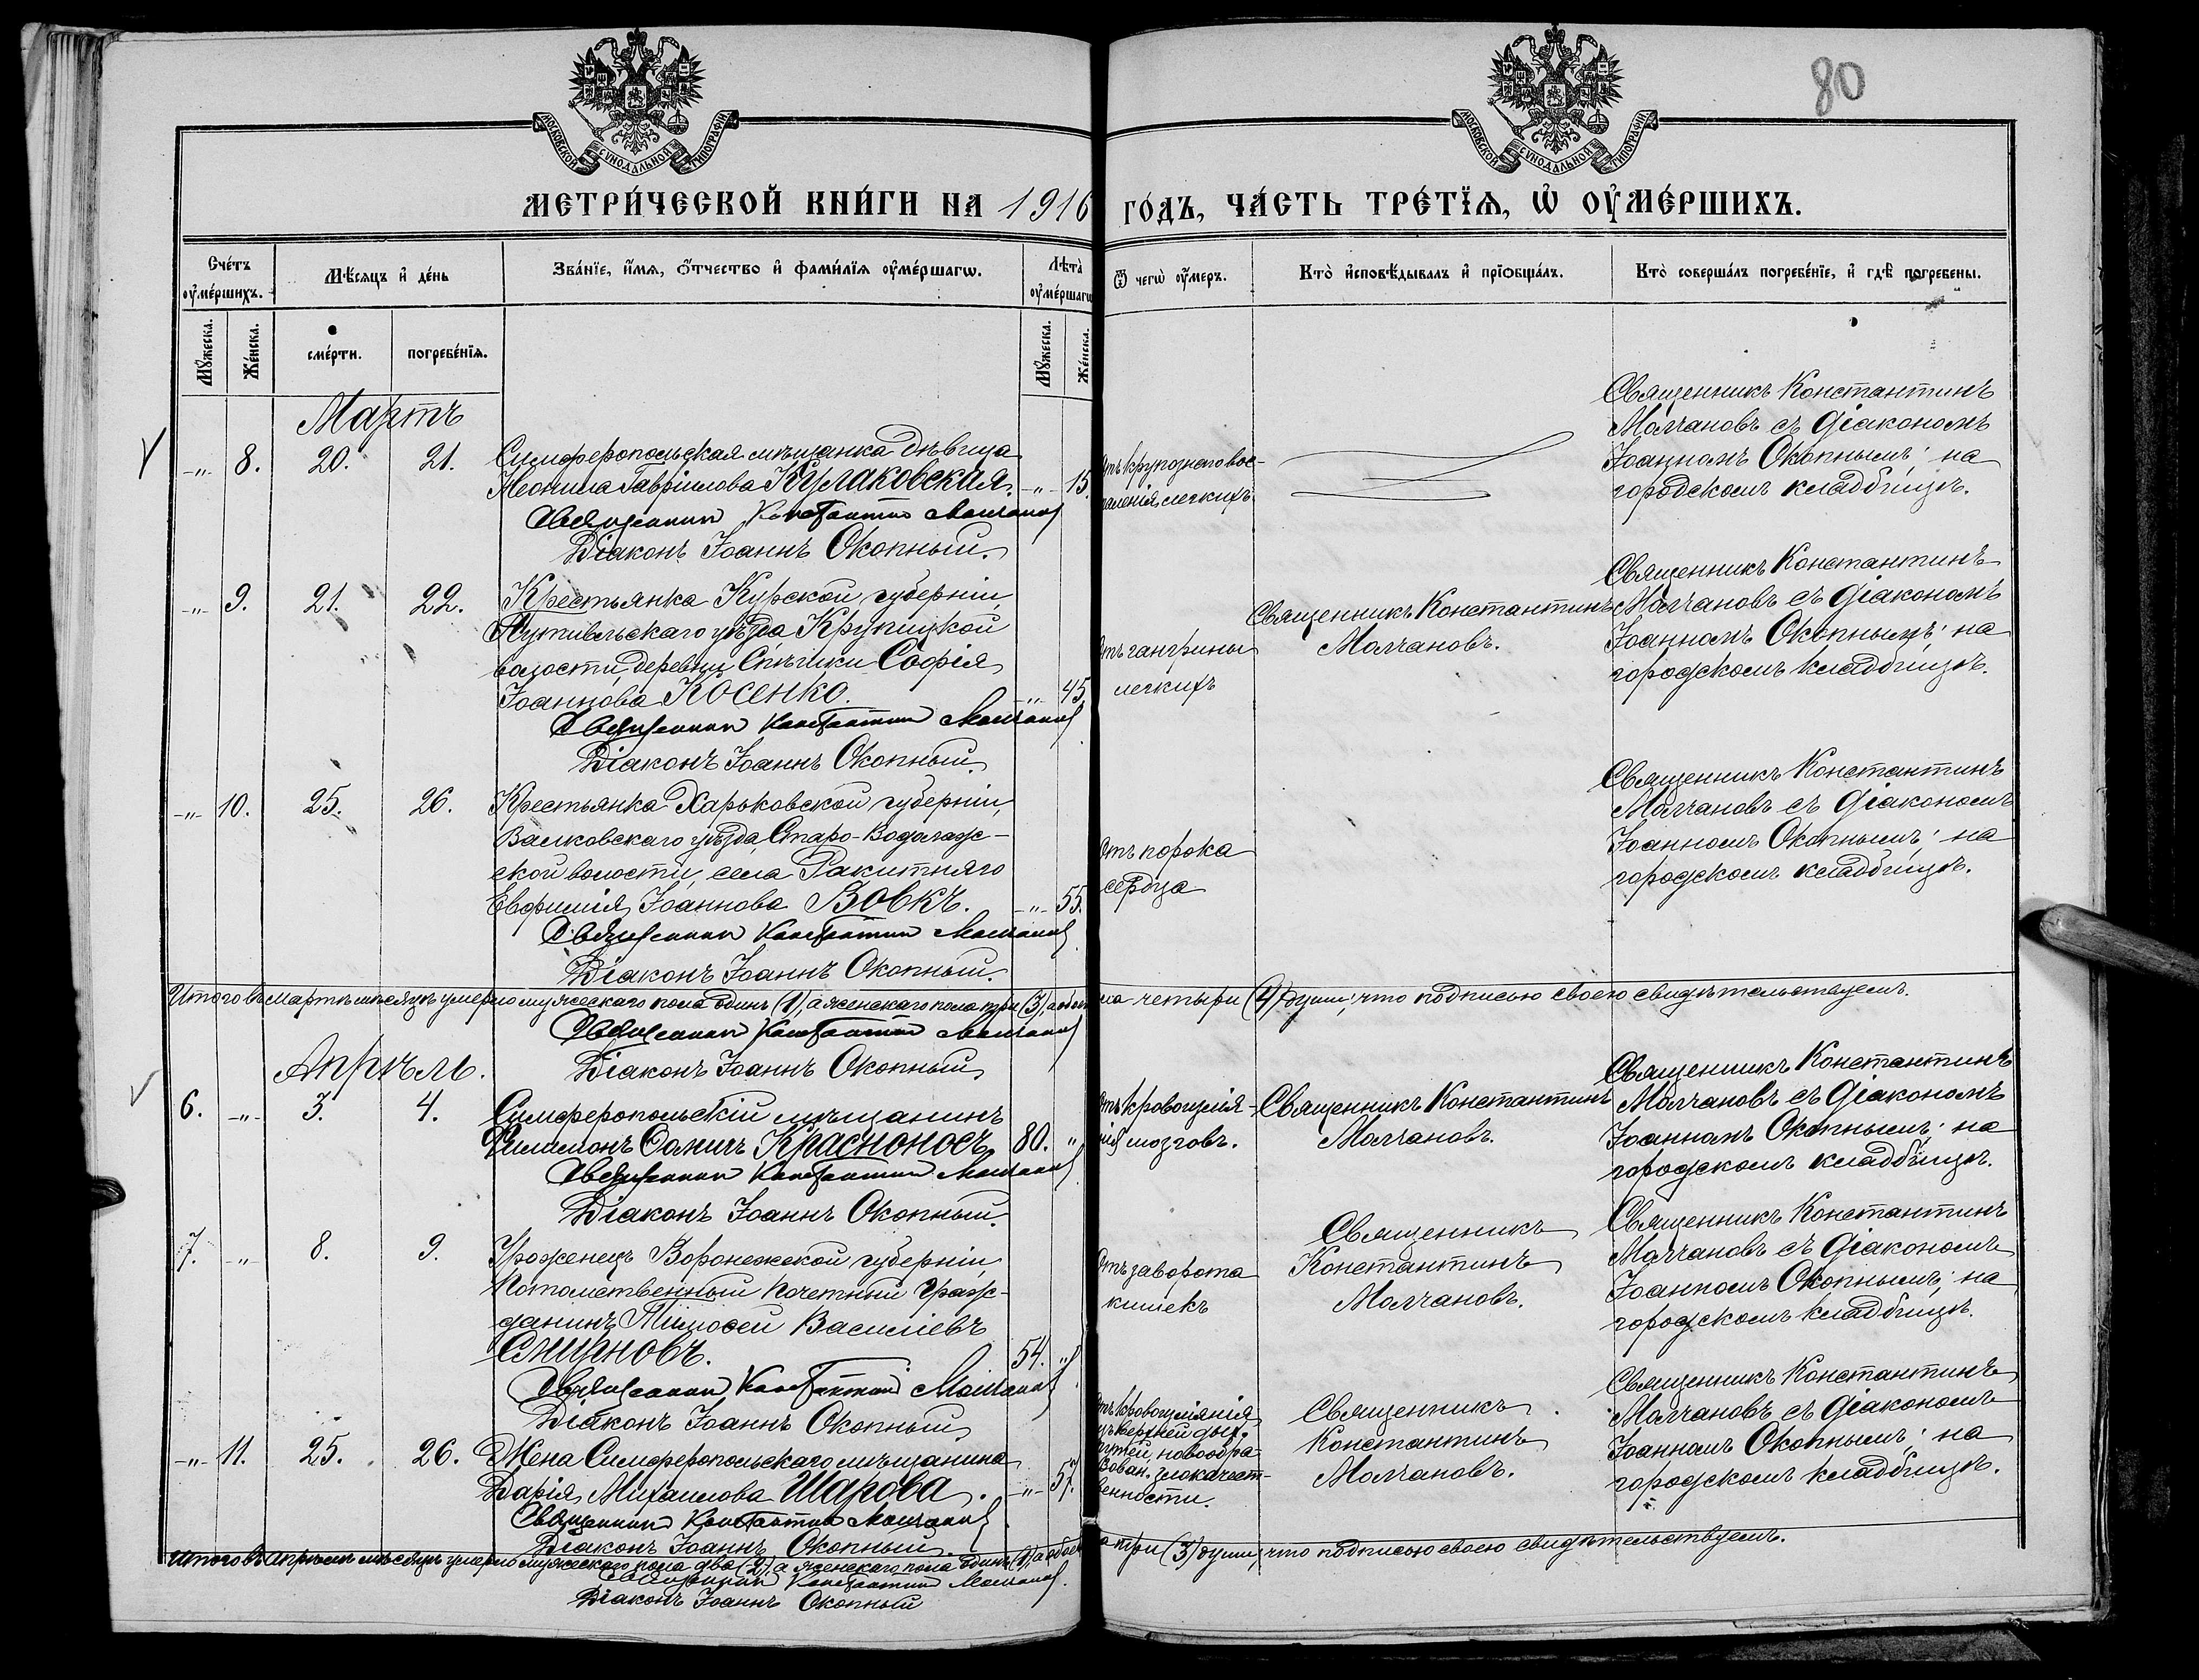 80
МОСКОВСКОЙ СѴНОДАЛЬНОЙ ТИПОГРАФІИ
МОСКОВСКОЙ СѴНОДАЛЬНОЙ ТИПОГРАФІИ
МЕТРИ́ЧЕСКОЙ КНИ́ГИ НА 1916 ГО́ДЪ, ЧА́СТЬ ТРЕ́ТЇѦ, Ѡ҆ ОУ҆МЕ́РШИХЪ.
Сче́тъ оу҆ме́ршихъ.
Мѣ́сяцъ и҆ де́нь
Зва́нїе, и҆́мя, ѻ҆́тчество и҆ фами́лїя оу҆ме́ршагѡ.
Лѣта̀ оу҆ме́ршагѡ
Ѿ чегѡ̀ оу҆́меръ.
Кто̀ и҆сповѣ́дывалъ и҆ прїѡбща́лъ.
Кто̀ соверша́лъ погребе́нїе, и҆ гдѣ̀ погребены.
Мꙋ́жеска.
Же́нска.
сме́рти.
погребе́нїя.
Мꙋ́жеска.
Же́нска.
Мартъ
-„- 8. 20. 21.
Симферопольская мѣщанка дѣвица
Леонила Гавріилова Кулаковская. -„- 15.
Священник Константин Молчанов
Діаконъ Іоаннъ Окопный.
отъ крупознаго вос-
паленія легкихъ
Священникъ Константинъ
Молчановъ съ діакономъ
Іоанномъ Окопнымъ; на
городскомъ кладбищѣ.
-„- 9. 21. 22.
Крестьянка Курской губерніи,
Путивльскаго уѣзда Крупицкой
волости, деревни Спѣшки Софія
Іоаннова Косенко. -„- 45.
Священник Константин Молчанов
Діаконъ Іоаннъ Окопный.
Отъ гангрины
легкихъ
Священникъ Константинъ
Молчановъ.
Священникъ Константинъ
Молчановъ съ діакономъ
Іоанномъ Окопнымъ; на
городскомъ кладбищѣ.
-„- 10. 25. 26.
Крестьянка Харьковской губерніи,
Валковскаго уѣзда, Старо-Водолаж-
ской волости, села Ракитняго
Евфимія Іоаннова Вовкъ. -„- 55.
Священник Константин Молчанов
Діаконъ Іоаннъ Окопный.
Отъ порока
сердца
Священникъ Константинъ
Молчановъ съ діакономъ
Іоанномъ Окопнымъ; на
городскомъ кладбищѣ.
Итого въ мартѣ мѣсяцѣ умерло мужескаго пола одинъ (1), а женскаго пола три (3), а обоего пола четыри (4) души; что подписью своею свидѣтельствуемъ.
Священник Константин Молчанов
Діаконъ Іоаннъ Окопный
Апрѣль.
6. -„- 3. 4.
Симферопольскій мѣщанинъ
Филимонъ Ѳомичъ Красноносъ 80. „
Священник Константин Молчанов
Діаконъ Іоаннъ Окопный.
Отъ кровоизлія-
нія мозговъ.
Священникъ Константинъ
Молчановъ.
Священникъ Константинъ
Молчановъ съ діакономъ
Іоанномъ Окопнымъ; на
городскомъ кладбищѣ.
7. -„- 8. 9.
Уроженецъ Воронежской губерніи,
Потомственный почетный граж-
данинъ Тимоѳей Василіевъ
Смирновъ. 54. „
Священник Константин Молчанов
Діаконъ Іоаннъ Окопный
Отъ заворота
кишекъ
Священникъ
Константинъ
Молчановъ.
Священникъ Константинъ
Молчановъ съ діакономъ
Іоанномъ Окопнымъ; на
городскомъ кладбищѣ.
-„- 11. 25. 26.
Жена Симферопольскаго мѣщанина
Дарія Михаилова Шарова. -„- 57.
Священник Константин Молчанов
Діаконъ Іоаннъ Окопный.
Отъ кровоизліянія
верхней дых.
путей, новообра-
зован. злокачест-
венности.
Священникъ
Константинъ
Молчановъ.
Священникъ Константинъ
Молчановъ съ діакономъ
Іоанномъ Окопнымъ; на
городскомъ кладбищѣ.
Итого въ апрѣлѣ мѣсяцѣ умерло мужескаго пола два (2), а женскаго пола одинъ (1), а обоего три (3) души; что подписью своею свидѣтельствуемъ.
Священник Константин Молчанов.
Діаконъ Іоаннъ Окопный